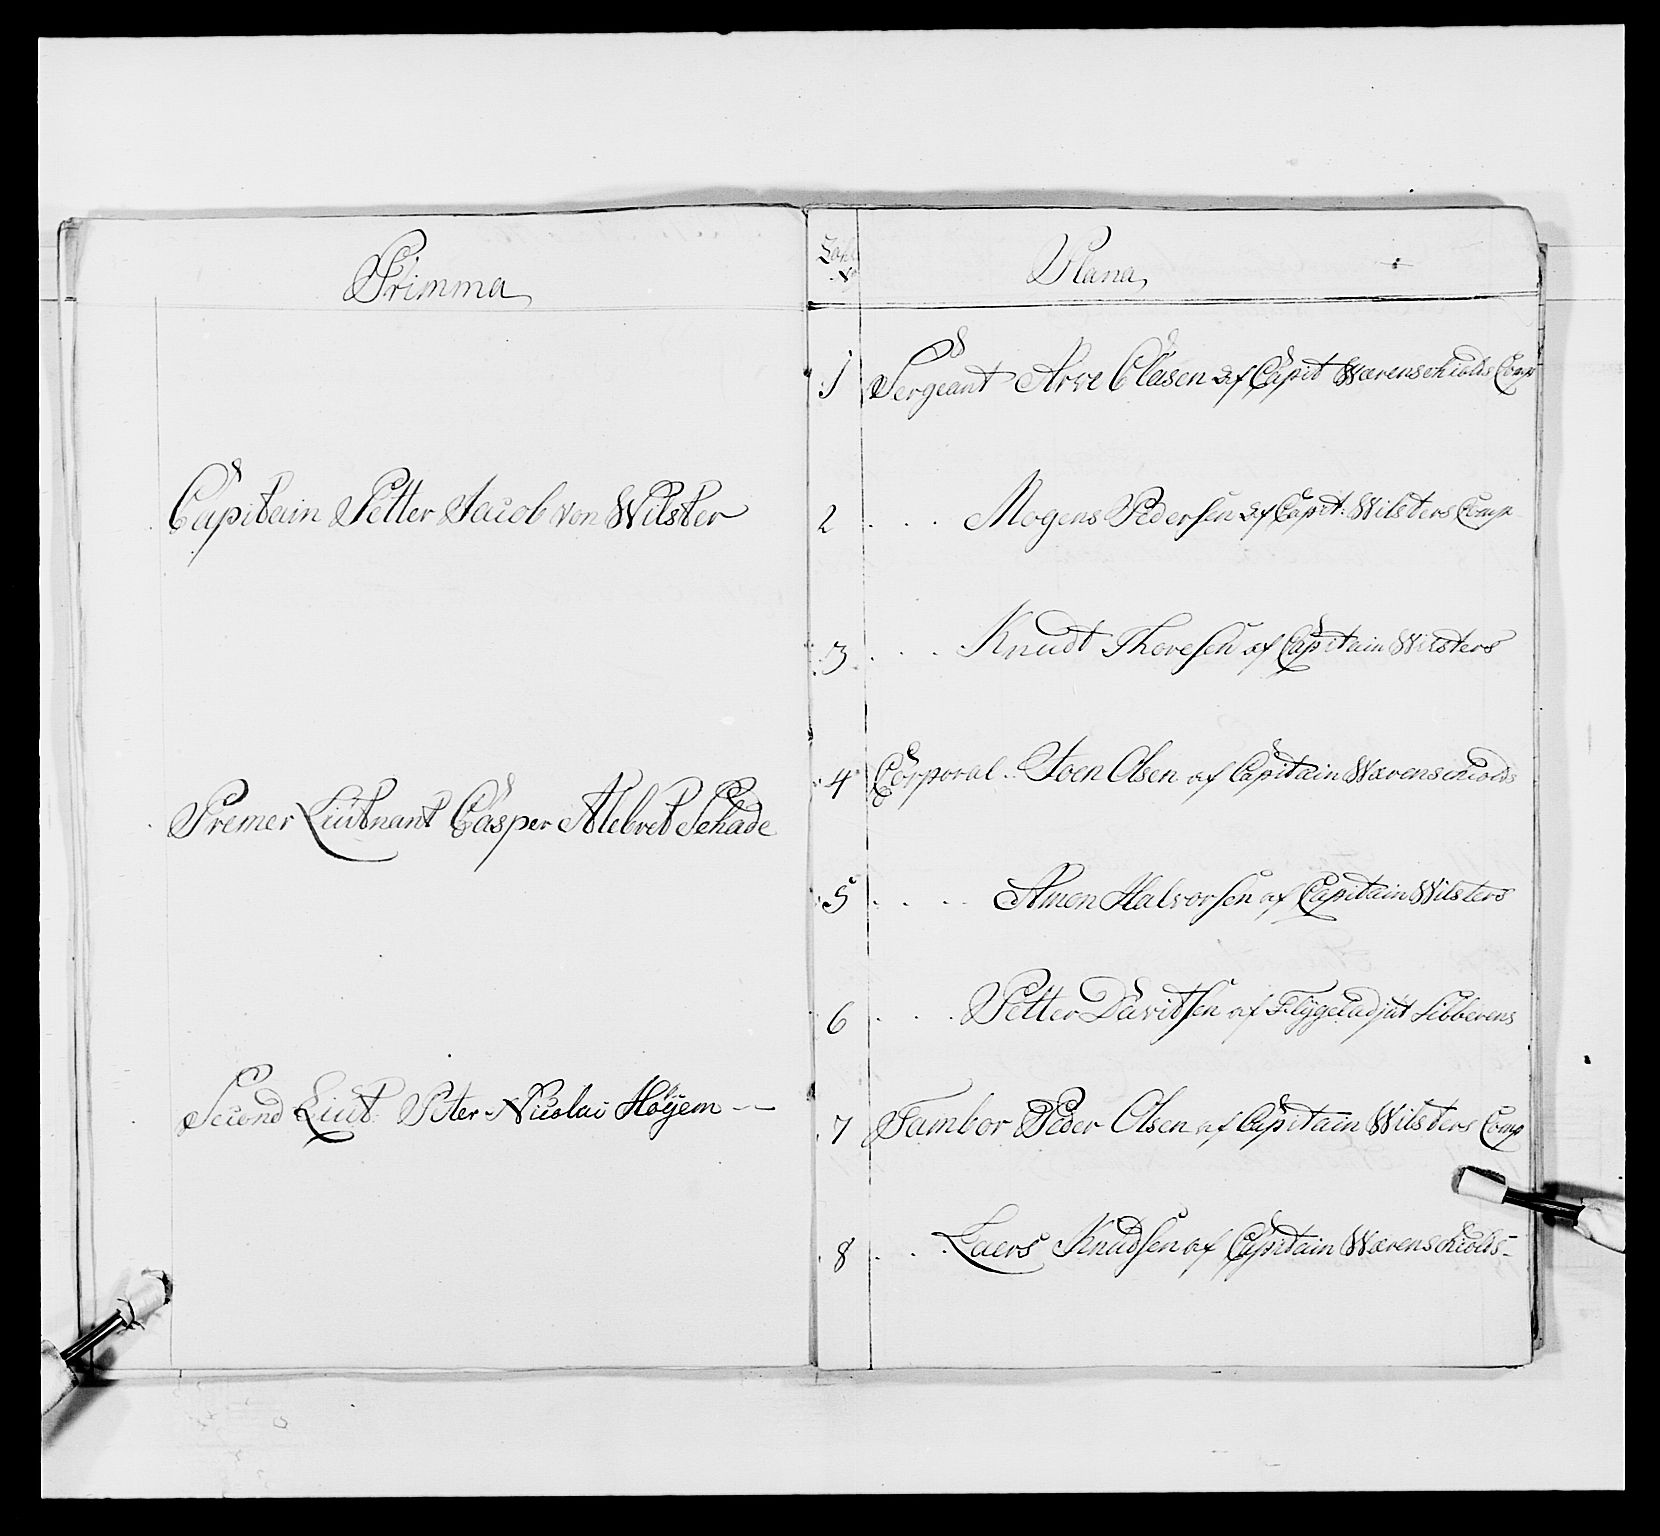 Primma
Capitain Petter Jacob von Wilster
Premer Liutnant Casper Albret Schade
Second Liut. Peter Nicolai Høyem --
No Plana,
1 Sergeant Arve Clasen af Capit Wærenschiolds Comp
2 . . . Mogens Pedersen af Capit. Wilsters Comp
3 . . . Knudt Thoresen af Capitain Wilsters
4 Corporal .. Joen Olsen af Capitain Wærenschiolds
5 . . . . Amon Halvorsen af Capitain Wilsters
6 . . . Petter Davitsen af Flygeladjut Sibberens
7 Tambor Peder Olsen af Capitain Wilsters Comp
8 . . . Laers Knudsen af Capitain Wærenschiolds -